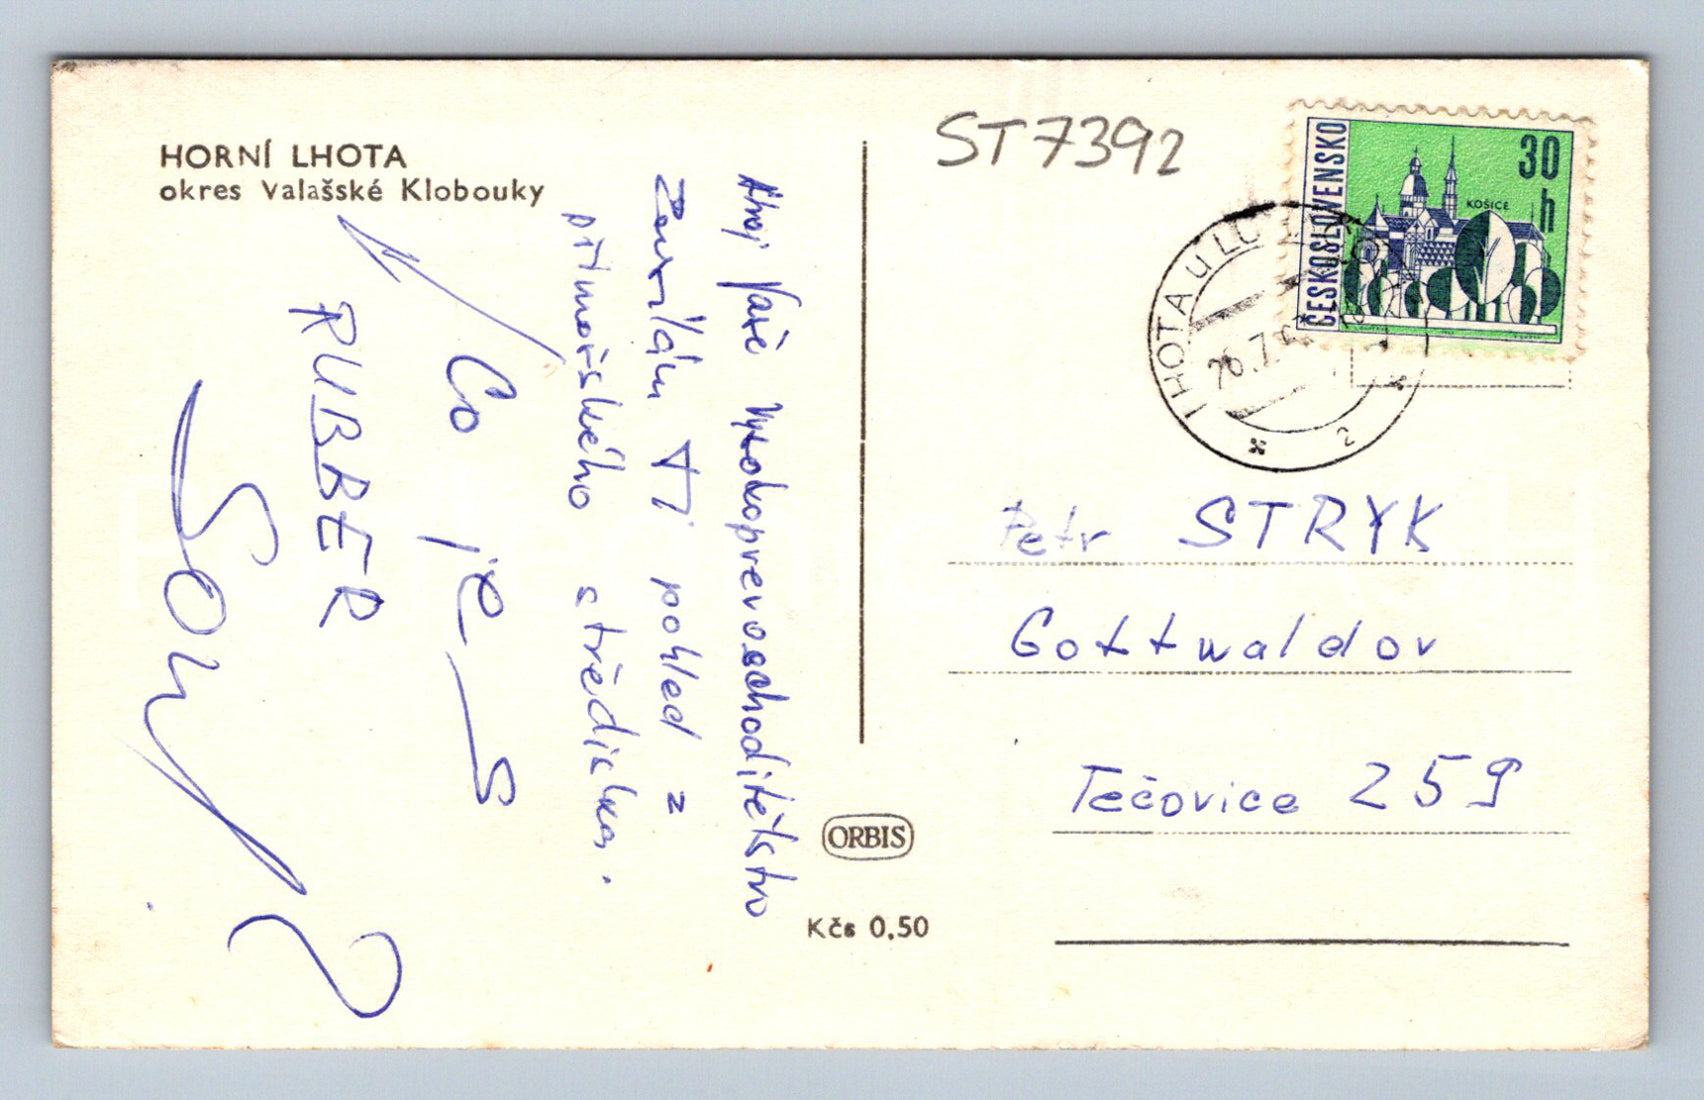 HORNÍ LHOTA
okres Valašské Klobouky
Ahoj Vaše Vysokoprevoschoditělstvo
Zasílám Ti pohled z
přímořského střediska.
Co je s
RUBBER
SOUL?
ST7392
ČESKOSLOVENSKO
30
h
KOŠICE
LHOTA U LU
26.7.6
2
Petr STRYK
Gottwaldov
Tečovice 259
ORBIS
Kčs 0,50